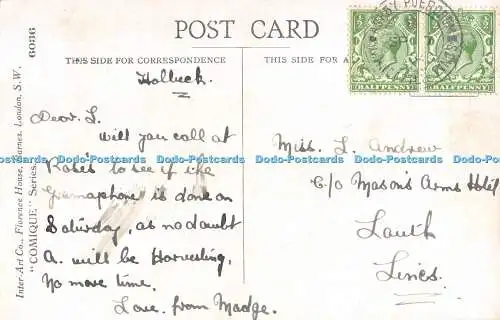 POST CARD
THIS SIDE FOR CORRESPONDENCE
THIS SIDE FOR A
Holbeck.
Dear L.
will you call at
Rose's to see if the
Gramaphone is done on
Saturday, as no doubt
A. will be Harvesting,
No more time.
Love from Madge.
Miss. L. Andrew
C/o Mason's Arms Hotel
Louth
Lincs.
HALFPENNY
HALFPENNY
Inter-Art Co., Florence House, Barnes, London, S.W.
"COMIQUE" Series. 6086
Dado-Postcards Dado-Postcards Dado-Postcards Dado-Postcards Dado-Postcards Dado-Postcards